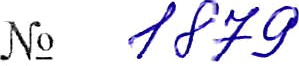 № 1879